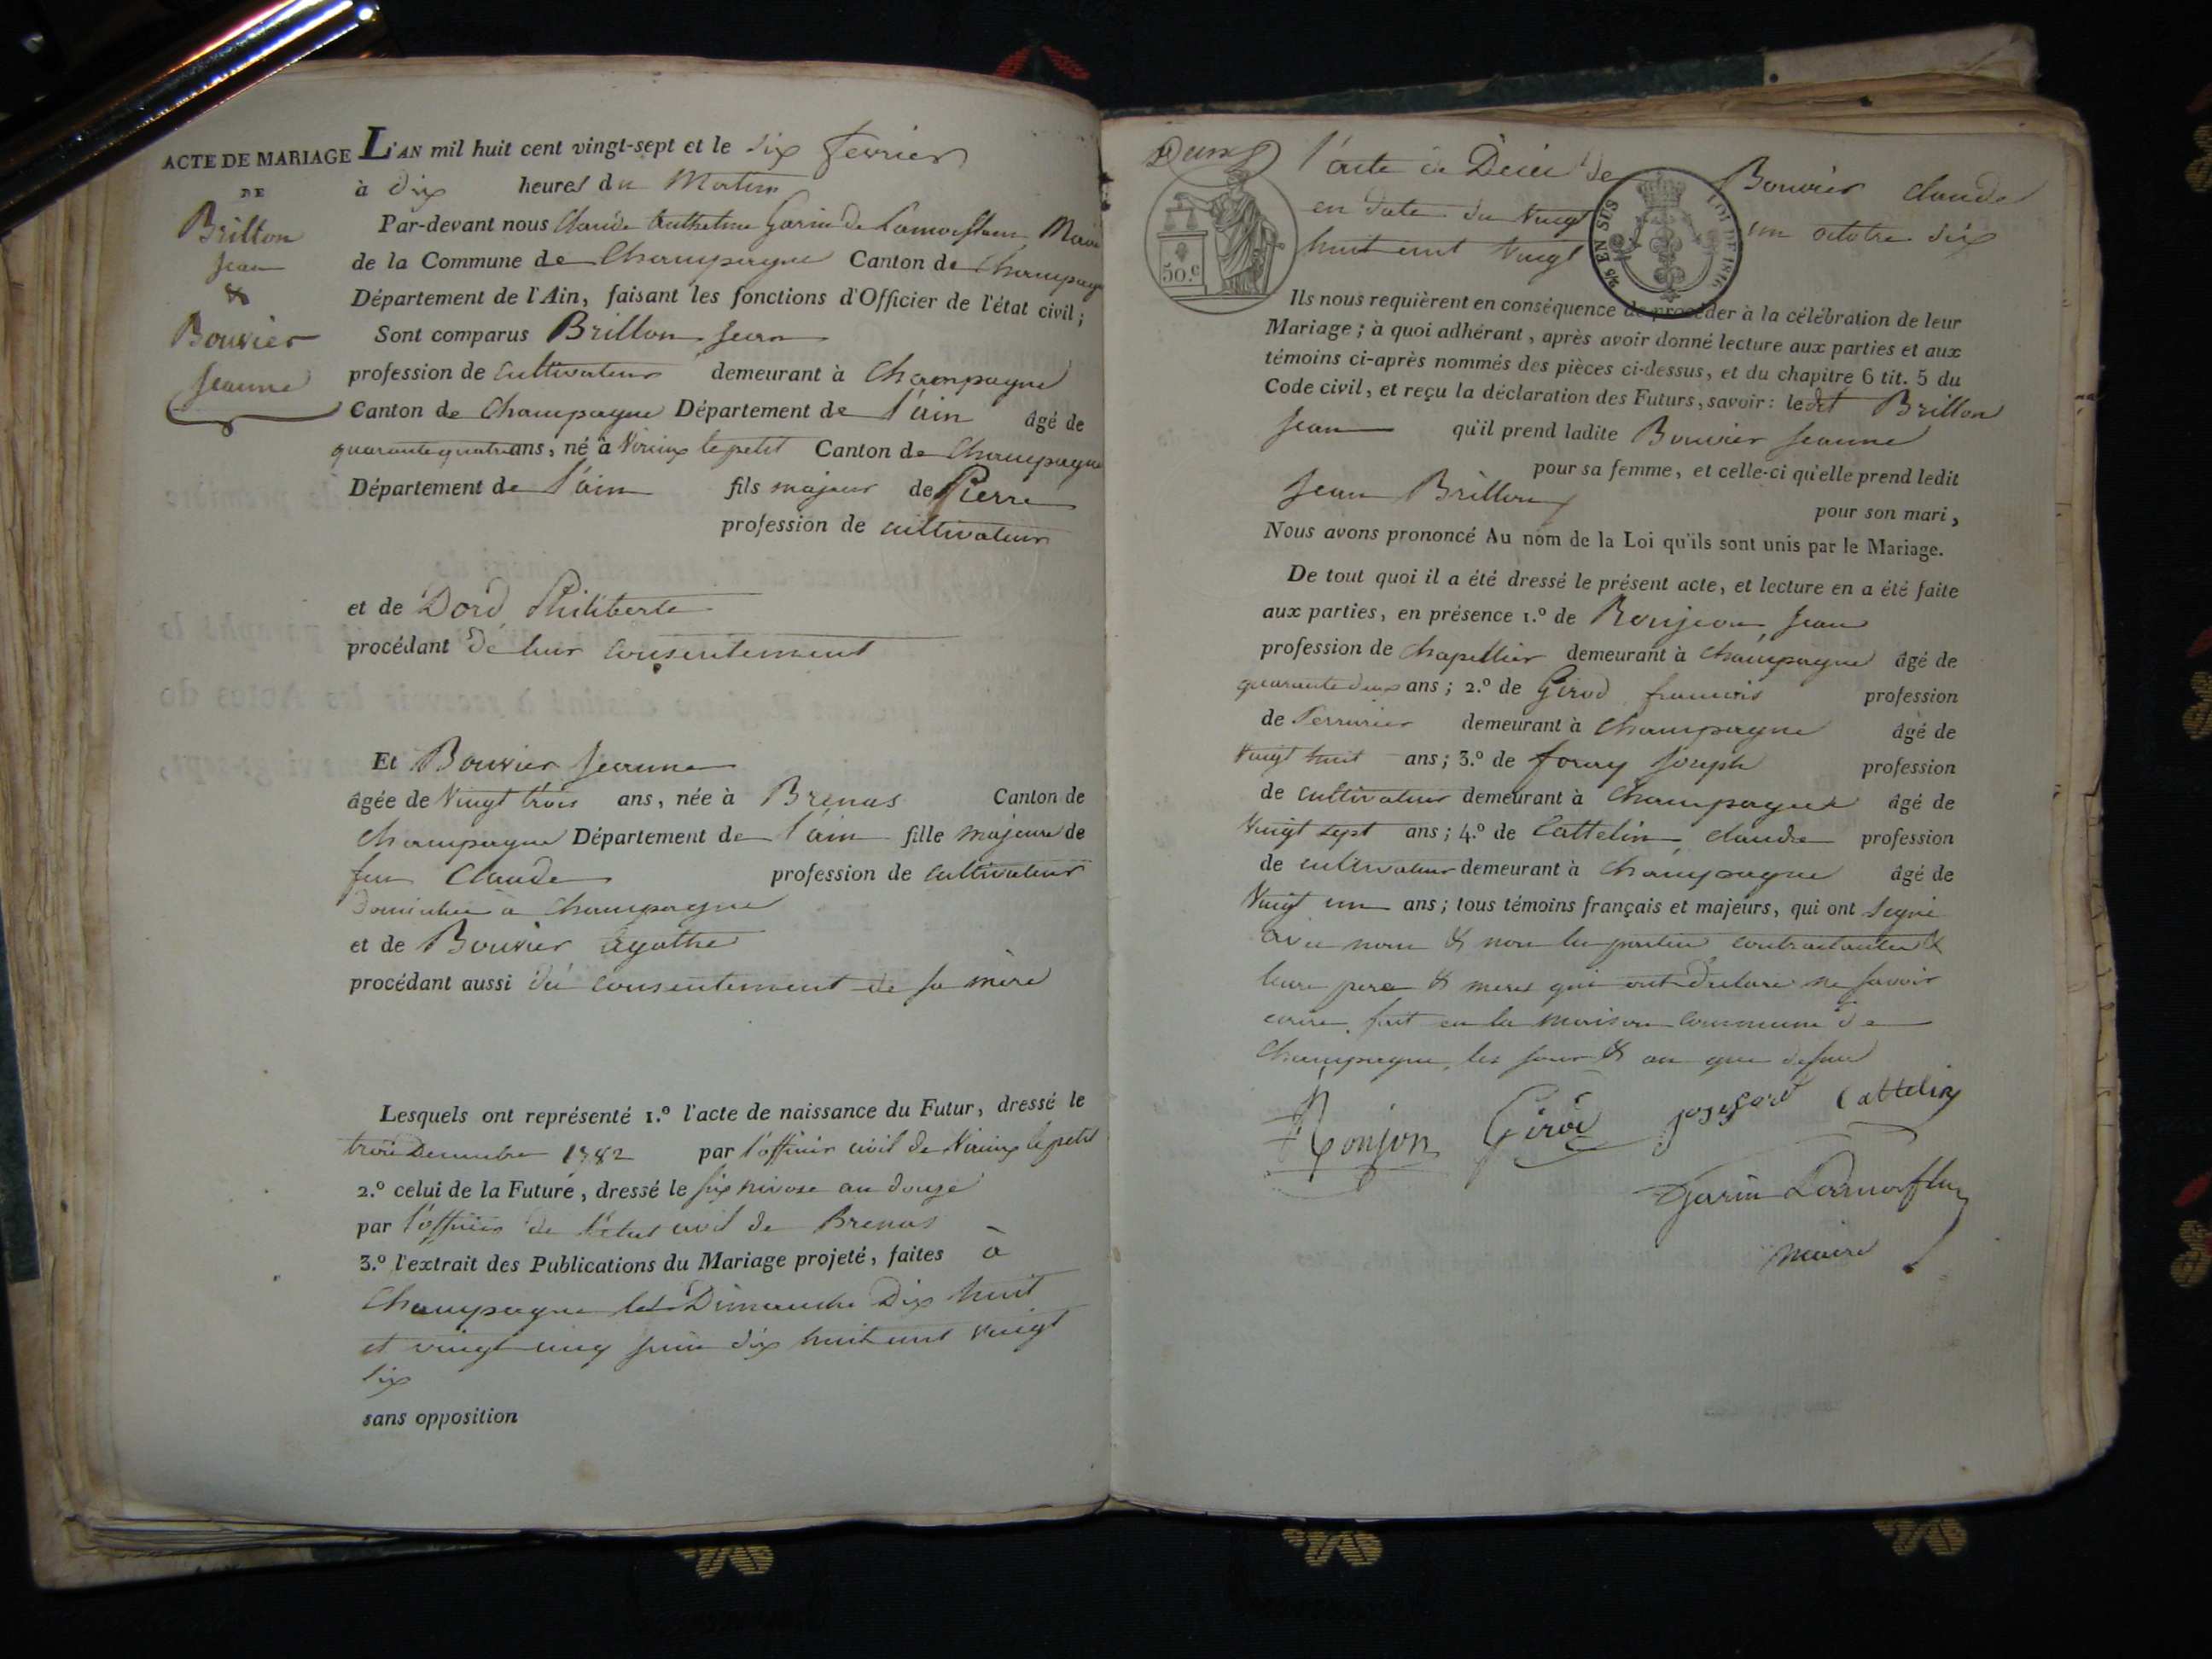 ACTE DE MARIAGE
DE
Brillon
Jean
&
Bouvier
Jeanne
L'AN mil huit cent vingt-sept et le dix fevrier
à dix heures du Matin
Par-devant nous Claude Anthelme Garin de Lamorflan Maire
de la Commune de Champagne Canton de Champagne
Département de l'Ain, faisant les fonctions d'Officier de l'état civil;
Sont comparus Brillon Jean
profession de Cultivateur demeurant à Champagne
Canton de Champagne Département de l'ain âgé de
quarante quatre ans, né à Virieux le petit Canton de Champagne
Département de l'ain fils majeur de Pierre
profession de cultivateur
et de Dord Philiberte
procédant de leur consentement
Et Bouvier Jeanne
âgée de Vingt trois ans, née à Brenas Canton de
Champagne Département de l'ain fille majeure de
feu Claude profession de Cultivateur
Domiciliée à Champagne
et de Bouvier Agathe
procédant aussi du consentement de sa mère
Lesquels ont représenté 1.º l'acte de naissance du Futur, dressé le
trois Decembre 1782 par l'officier civil de Virieux le petit
2.º celui de la Future, dressé le six nivose an douze
par l'officier de l'état civil de Brenas
3.º l'extrait des Publications du Mariage projeté, faites à
Champagne les Dimanche Dix huit
et vingt cinq juin dix huit cent vingt
six
sans opposition
l'acte de Décès de Bouvier Claude
en date du Vingt un octobre dix
huit cent Vingt
50.c
EN SUS
LOI DE 1816
Ils nous requièrent en conséquence de procéder à la célébration de leur
Mariage; à quoi adhérant, après avoir donné lecture aux parties et aux
témoins ci-après nommés des pièces ci-dessus, et du chapitre 6 tit. 5 du
Code civil, et reçu la déclaration des Futurs, savoir: le dit Brillon
Jean qu'il prend ladite Bouvier Jeanne
pour sa femme, et celle-ci qu'elle prend ledit
Jean Brillon
pour son mari,
Nous avons prononcé Au nom de la Loi qu'ils sont unis par le Mariage.
De tout quoi il a été dressé le présent acte, et lecture en a été faite
aux parties, en présence 1.º de Ronjon Jean
profession de Chapellier demeurant à Champagne âgé de
quarante deux ans; 2.º de Girod francois profession
de Serrurier demeurant à Champagne âgé de
Vingt huit ans; 3.º de Joseph profession
de Cultivateur demeurant à Champagne âgé de
Vingt sept ans; 4.º de Cattelin Claude profession
de cultivateur demeurant à Champagne âgé de
Vingt un ans; tous témoins français et majeurs, qui ont signé
avec nous & non les parties contractantes &
leurs pere & meres qui ont declaré ne savoir
ecrire, fait en la maison commune de
Champagne, les jour & an que dessus
Ronjon Girod Cattelin
Garin Lamorflan
maire